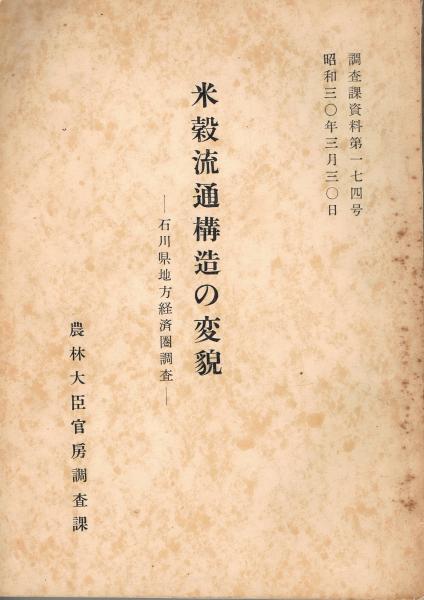 調査課資料第一七四号
昭和三〇年三月三〇日
米穀流通構造の変貌
―石川県地方経済圏調査―
農林大臣官房調査課